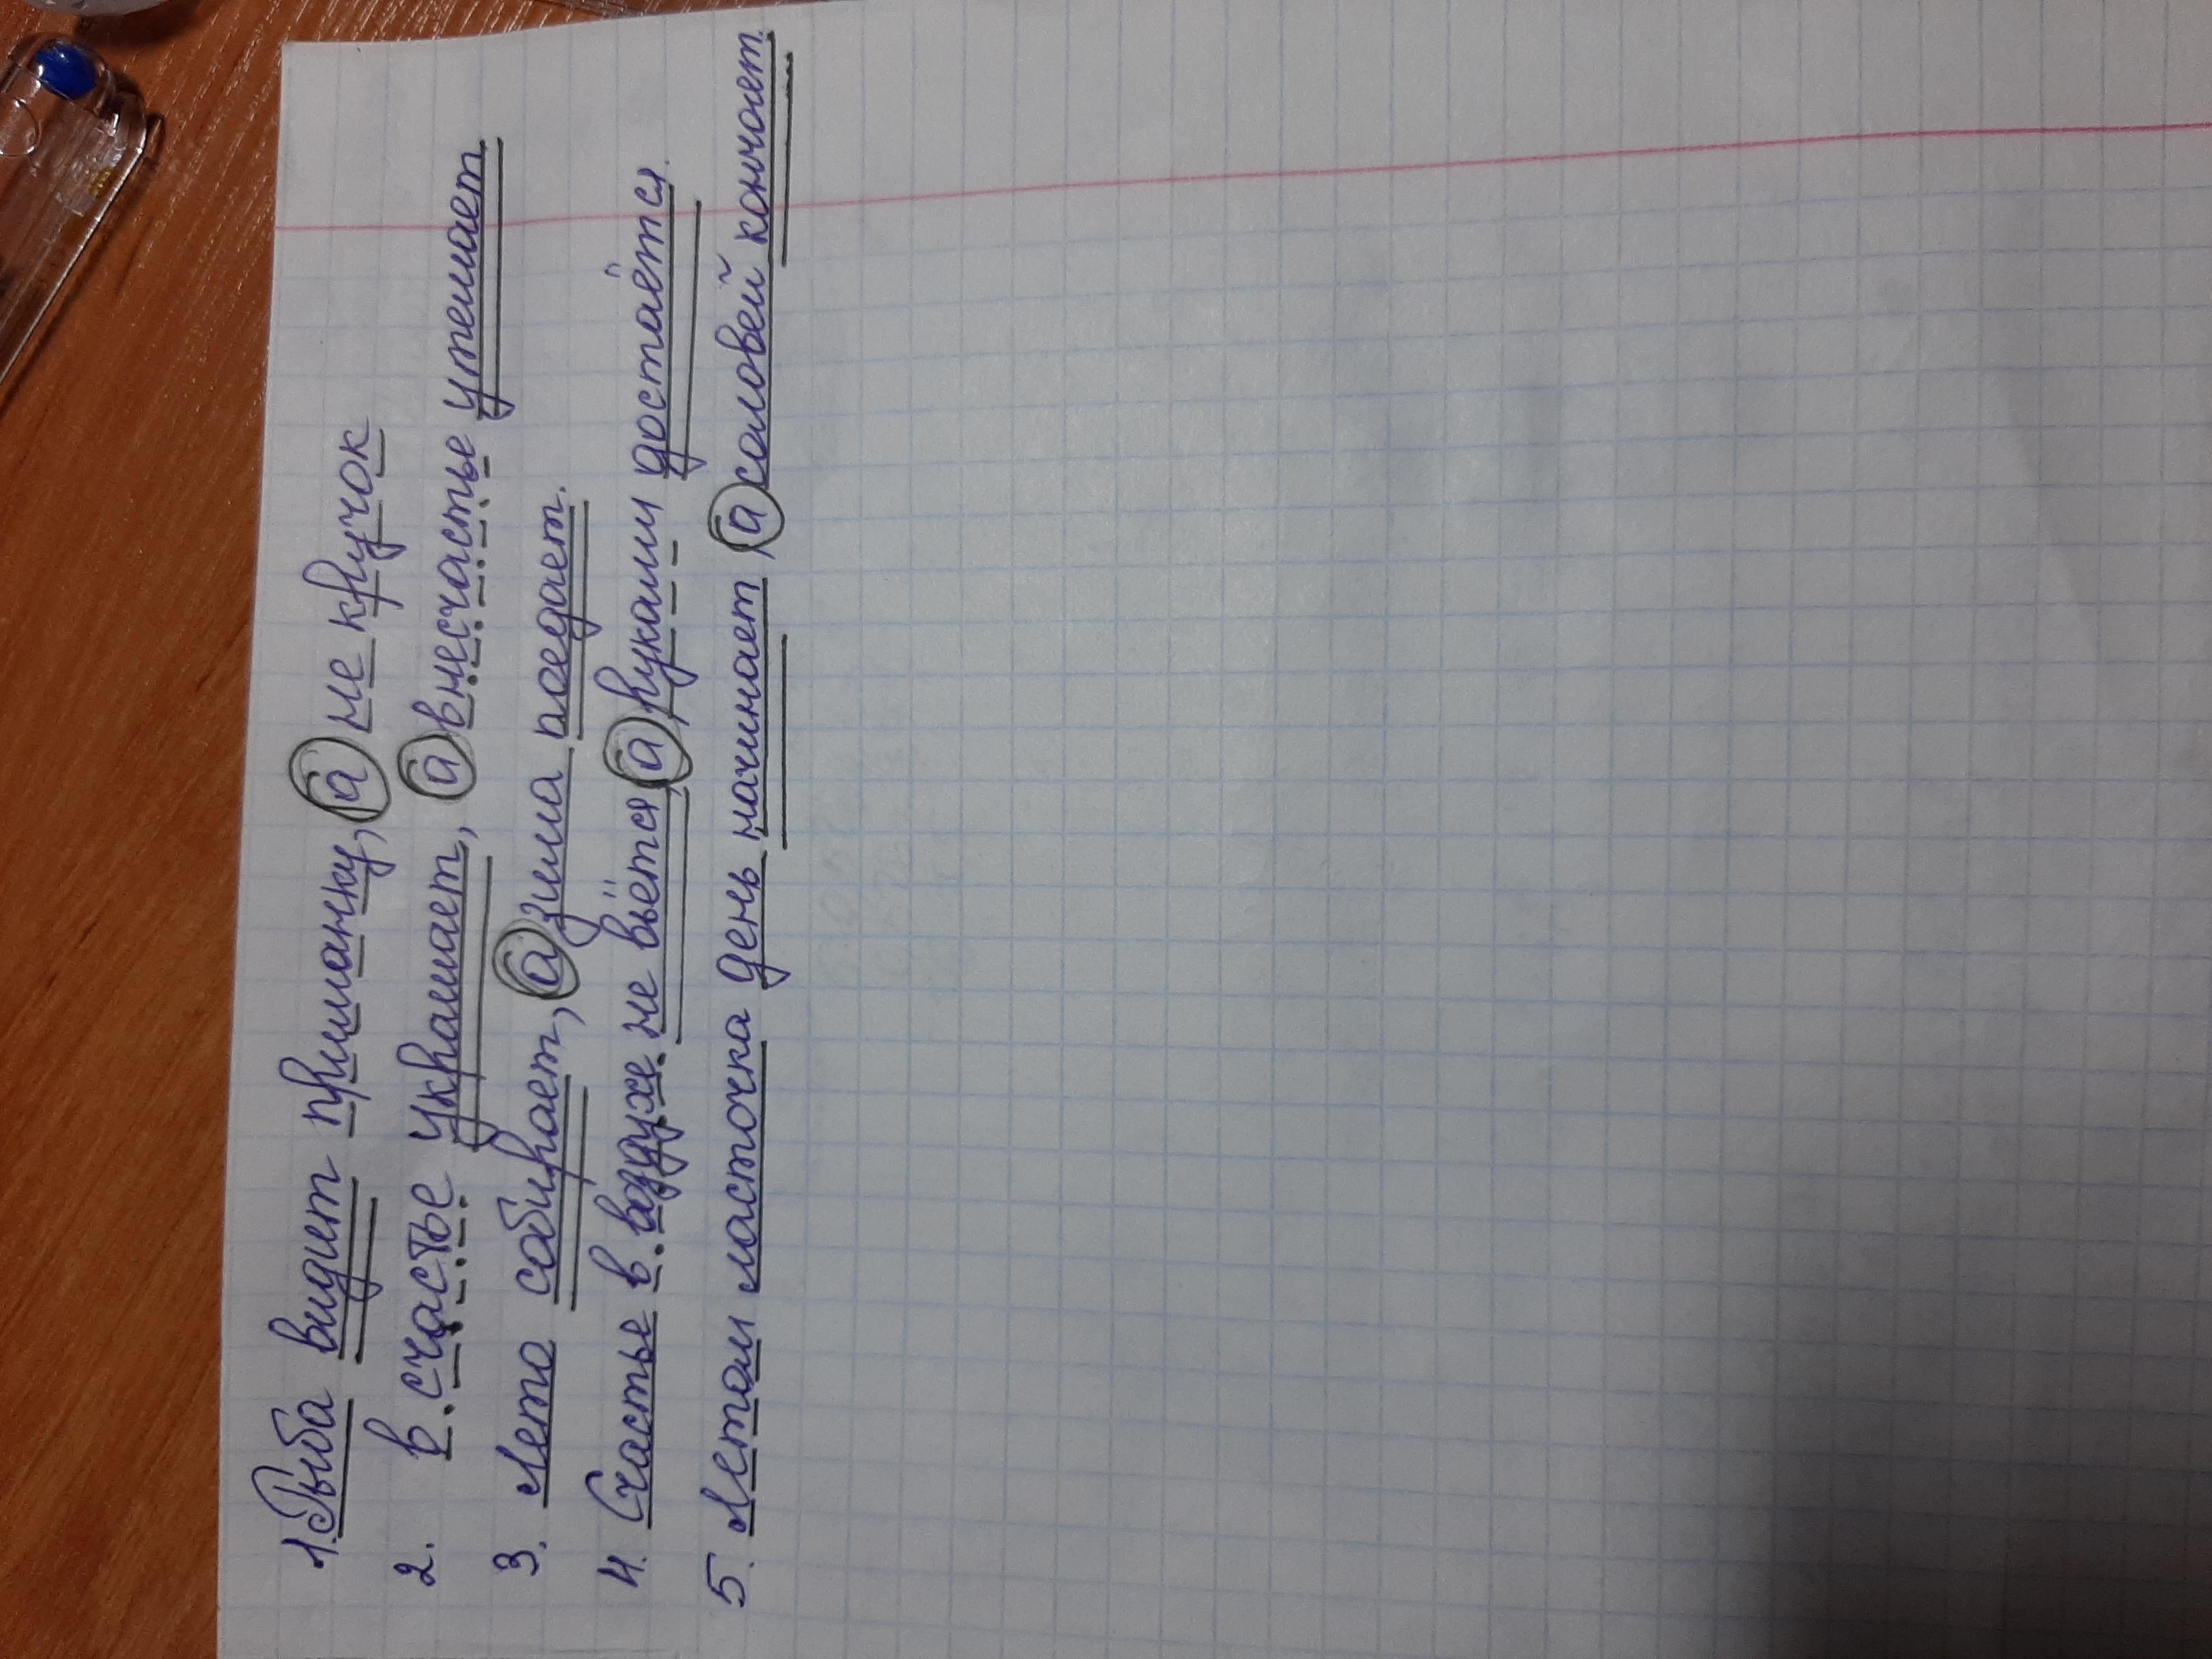 1. Рыба видит приманку, а не крючок
2. в счастье украшает, а в несчастье утешает.
3. Лето собирает, а зима поедает.
4. Счастье в воздухе не вьётся, а руками достаётся.
5. Летом ласточка день начинает, а соловей кончает.